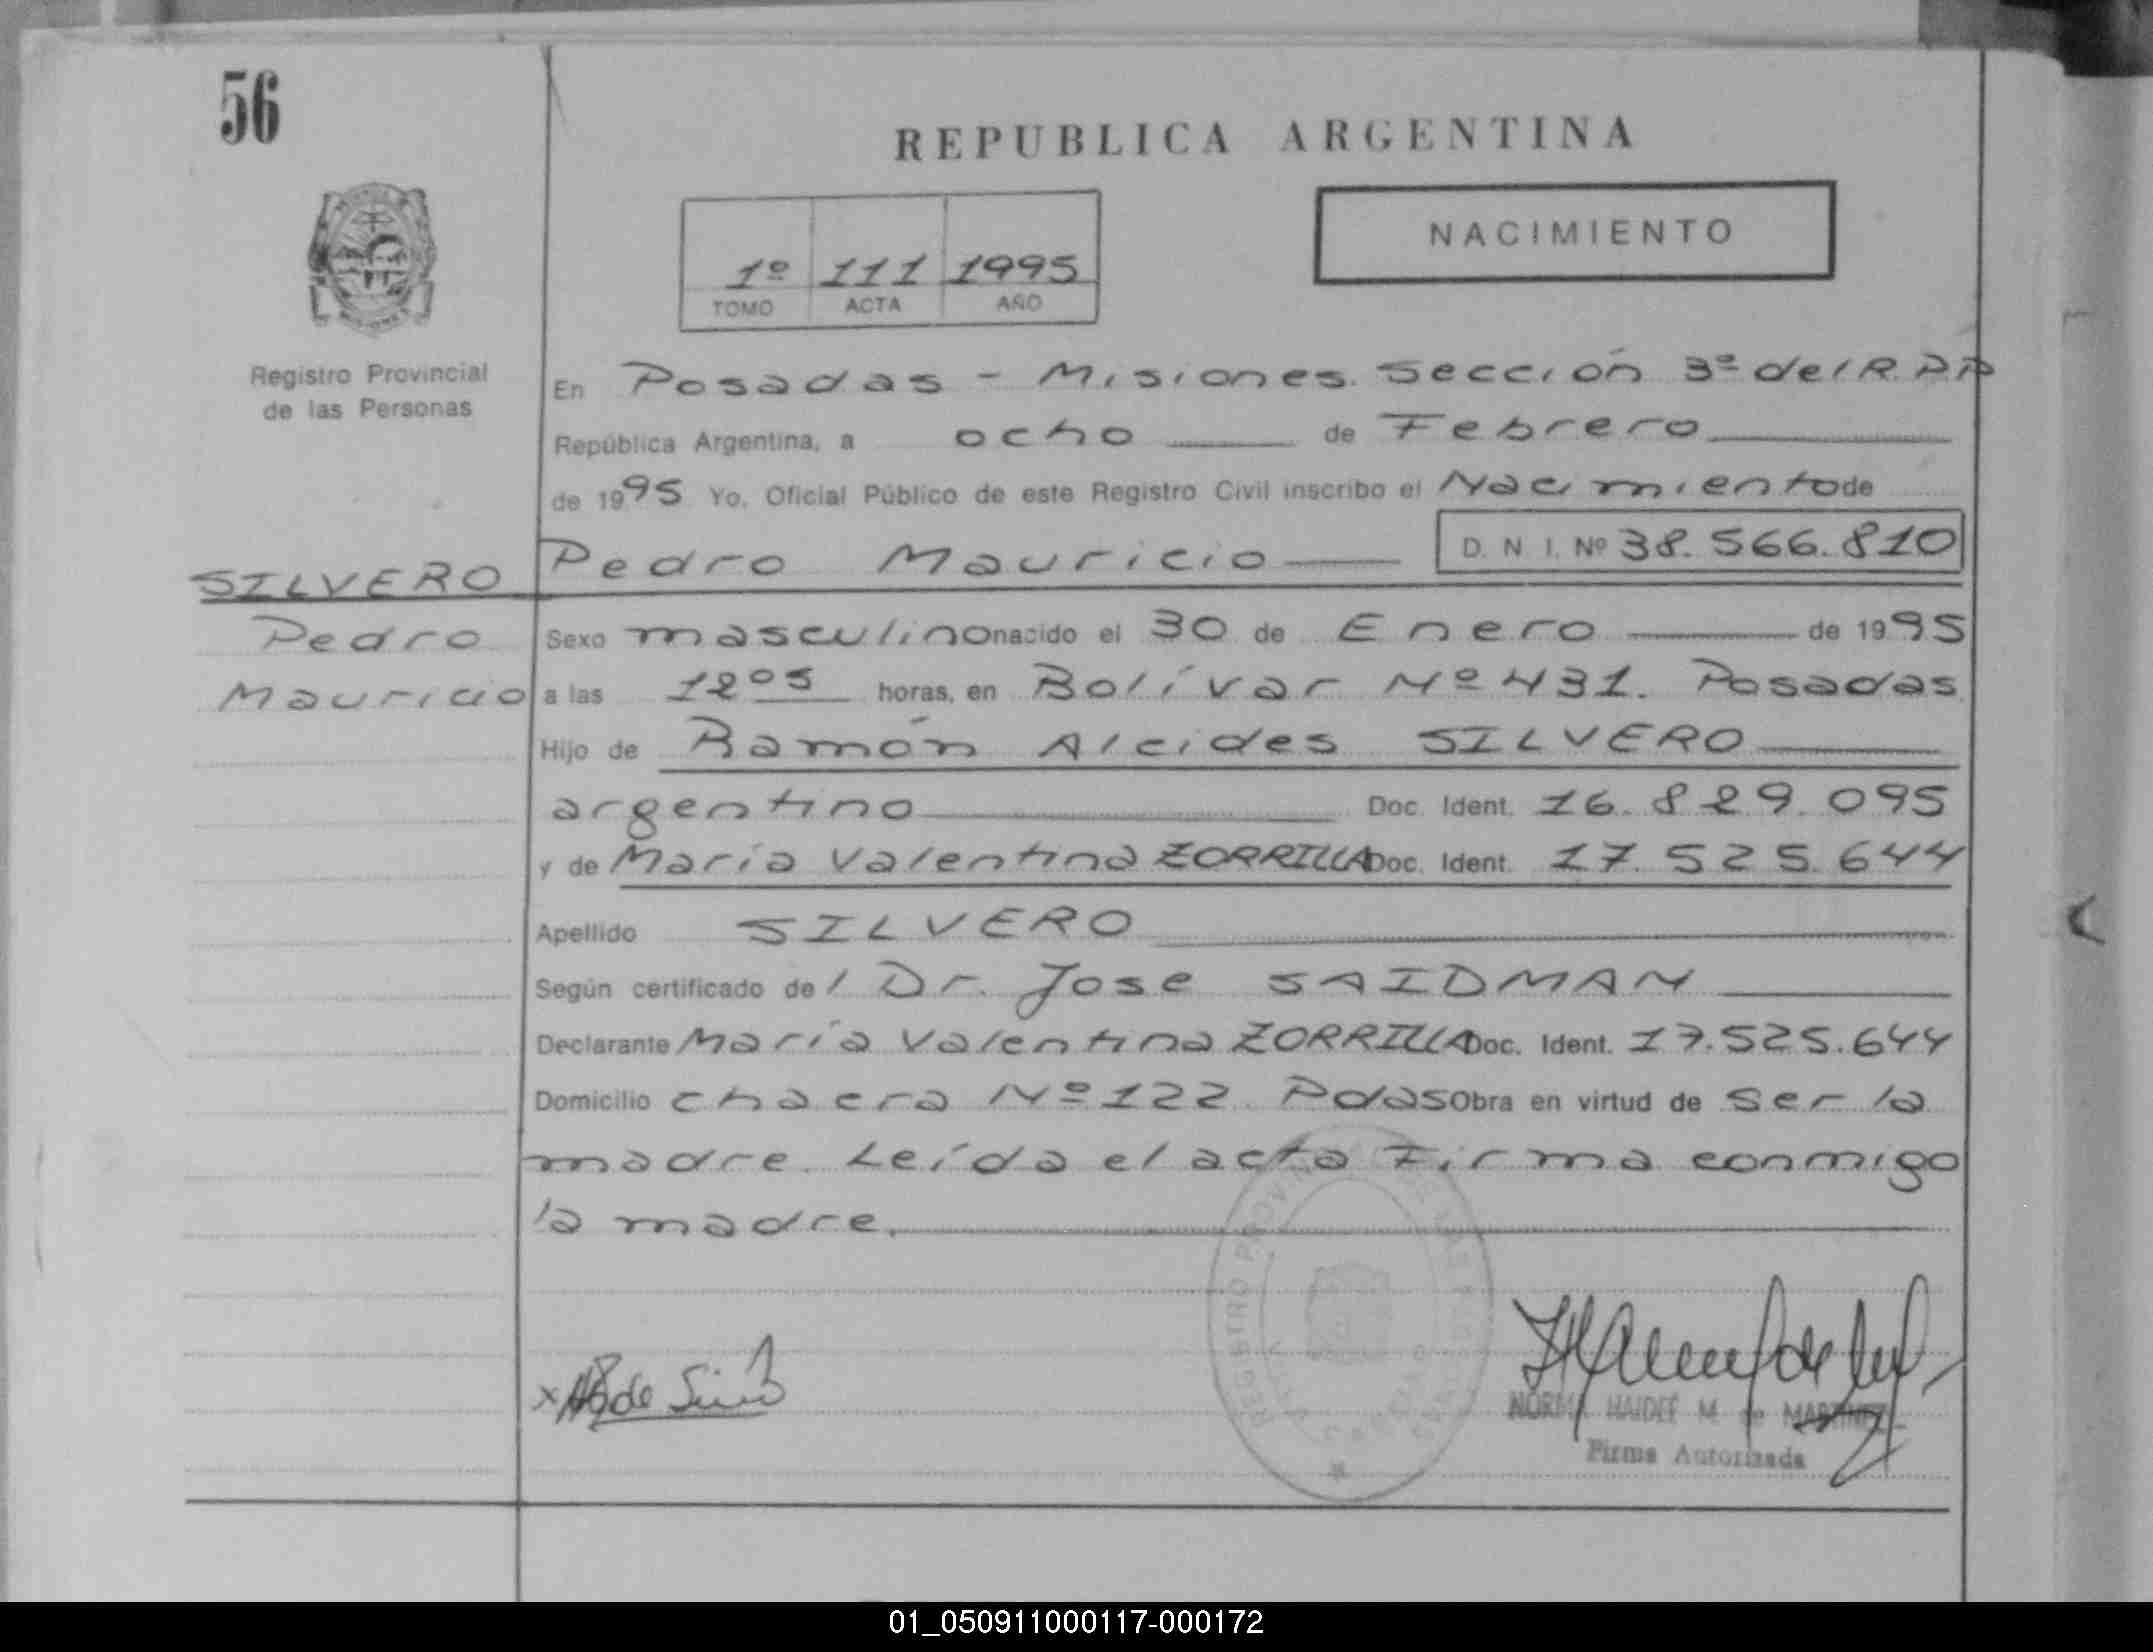 56
REPUBLICA ARGENTINA
1º 111 1995
TOMO ACTA AÑO
NACIMIENTO
Registro Provincial
de las Personas
En Posadas - Misiones. Sección 3ª del R.P.P
República Argentina, a ocho de Febrero
de 1995 Yo, Oficial Público de este Registro Civil inscribo el Nacimiento de
Pedro Mauricio D. N. I. Nº 38.566.810
SILVERO
Pedro
Mauricio
Sexo masculino nacido el 30 de Enero de 1995
a las 12 05 horas, en Bolívar Nº 431. Posadas
Hijo de Ramón Alcides SILVERO
argentino Doc. Ident. 16.829.095
y de María Valentina ZORRILLA Doc. Ident. 17.525.644
Apellido SILVERO
Según certificado del Dr. Jose SAIDMAN
Declarante María Valentina ZORRILLA Doc. Ident. 17.525.644
Domicilio chacra Nº 122 Pdas Obra en virtud de ser la
madre. Leída el acta Firma conmigo
la madre.
REGISTRO PROVINCIAL DE LAS PERSONAS
NORMA HAIDEE M. de MARTINEZ
Firma Autorizada
01_050911000117-000172